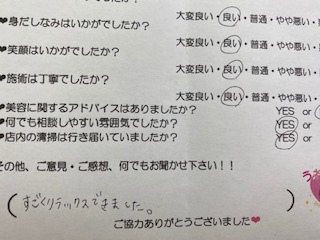 ♥身だしなみはいかがでしたか？ 大変良い・良い・普通・やや悪い・
♥笑顔はいかがでしたか？ 大変良い・良い・普通・やや悪い・
♥施術は丁寧でしたか？ 大変良い・良い・普通・やや悪い・
♥美容に関するアドバイスはありましたか？ YES or
♥何でも相談しやすい雰囲気でしたか？ YES or
♥店内の清掃は行き届いていましたか？ YES or
その他、ご意見・ご感想、何でもお聞かせ下さい！！
(すごくリラックスできました。
ご協力ありがとうございました♥